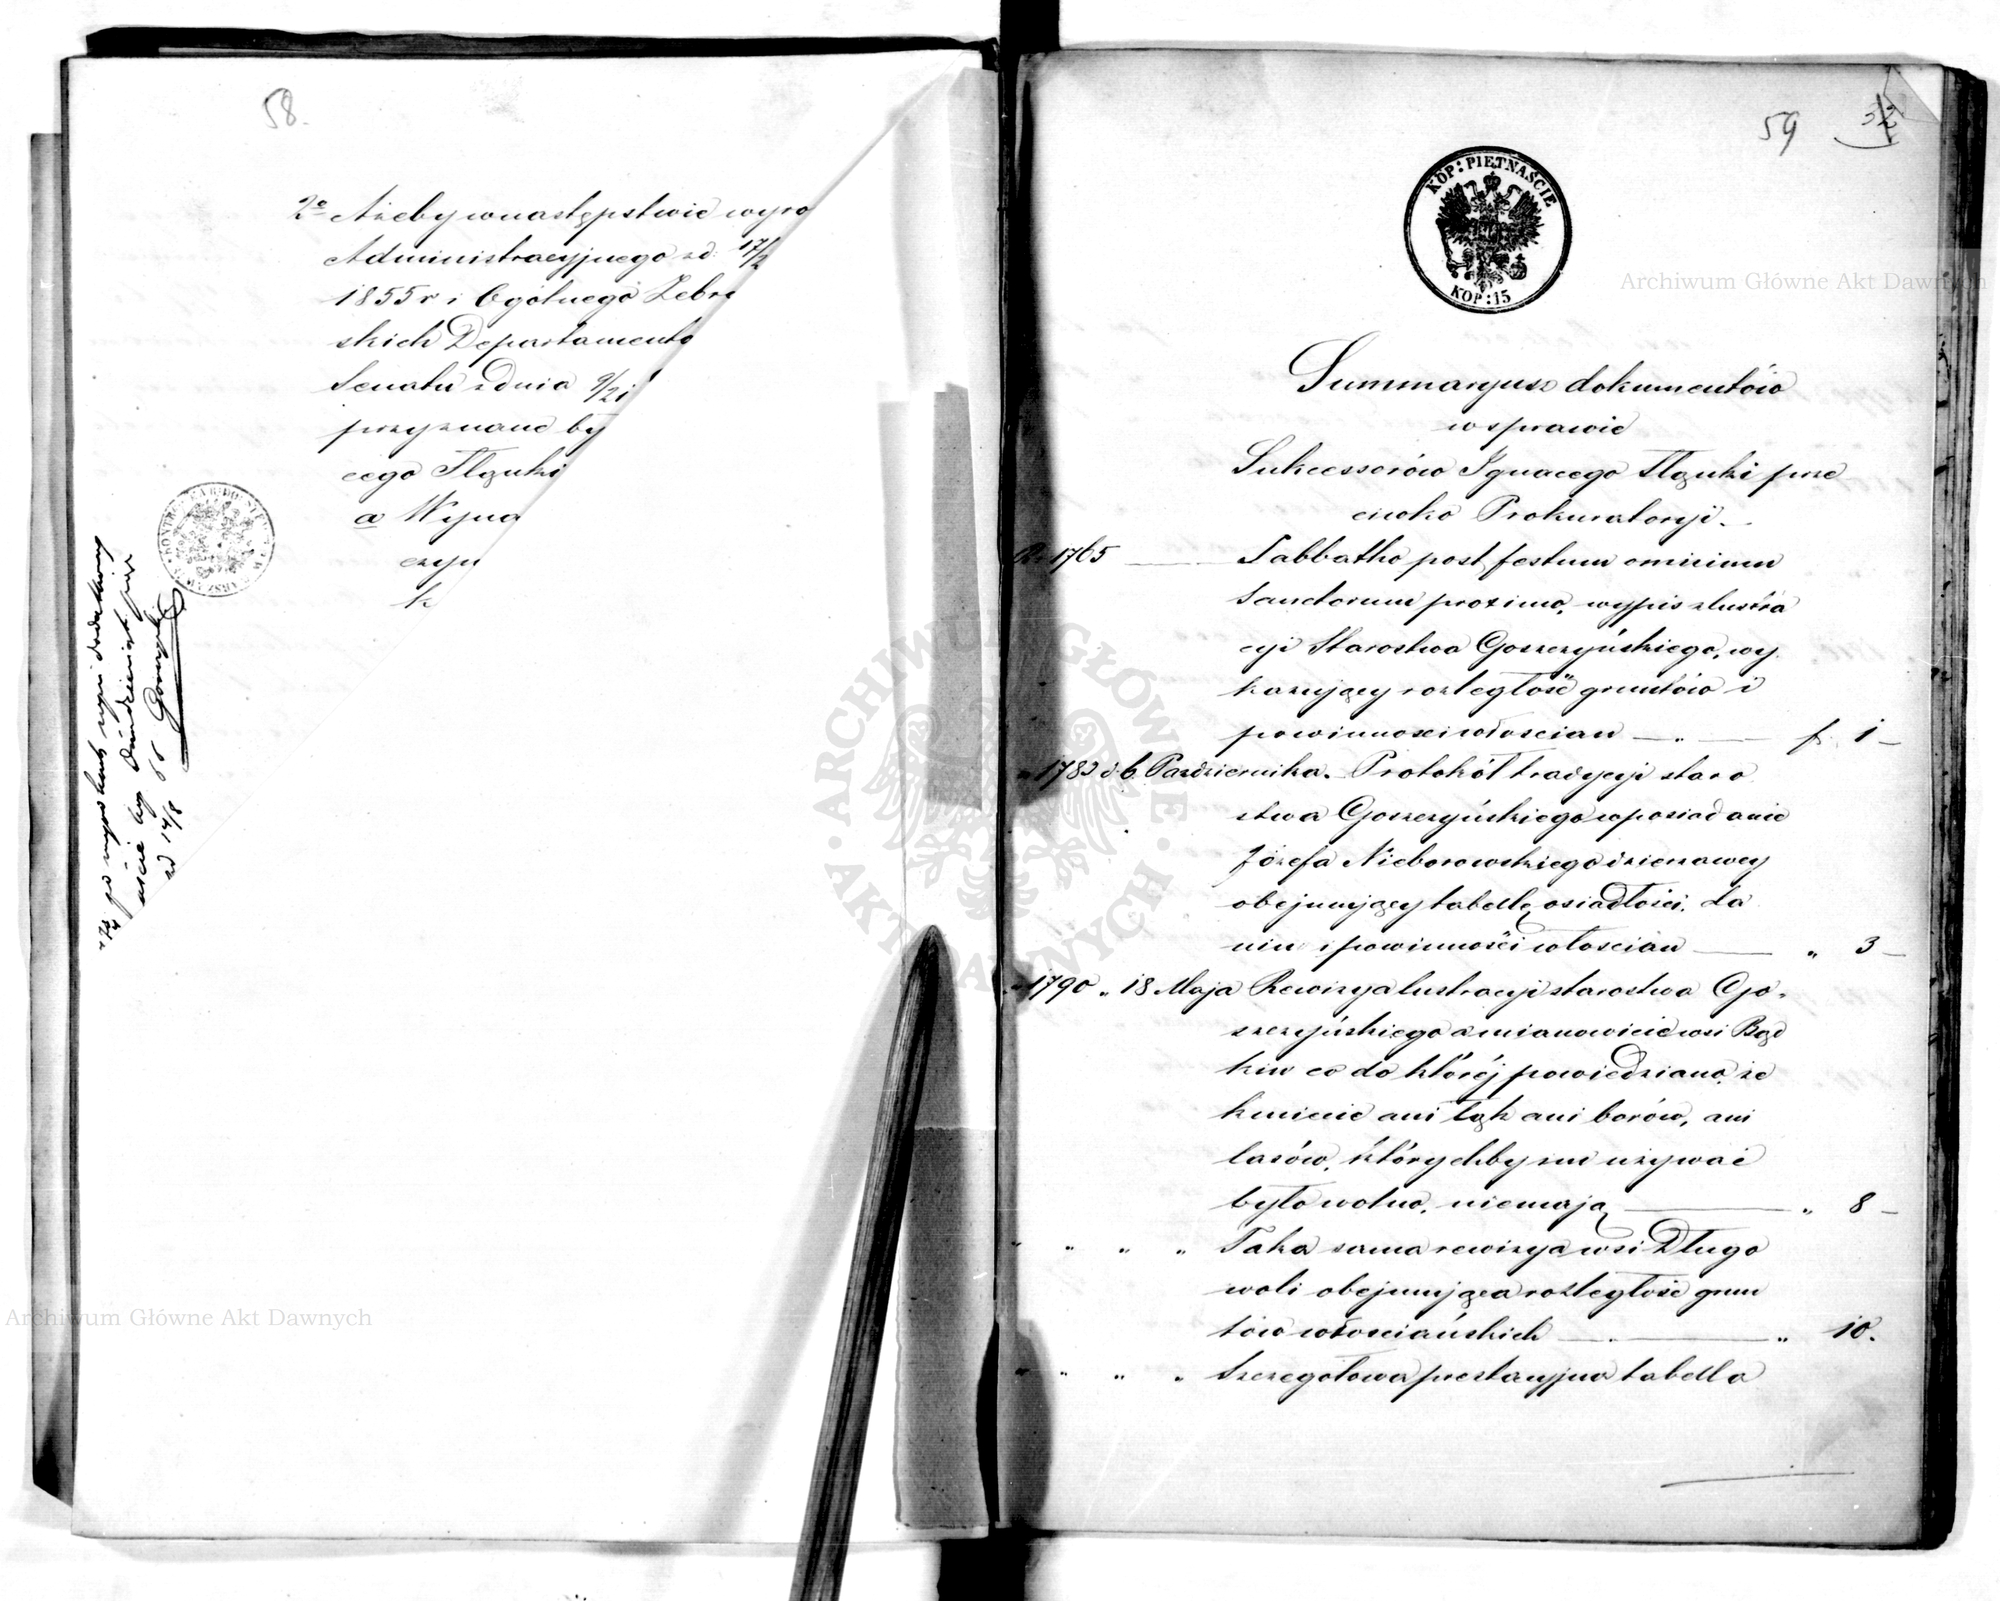 58.
2e Ażeby w następstwie wyro
Administracyjnego z d: 17/2
1855 r i Ogólnego Zebra
skich Departamento
Senatu z dnia 9/21
przyznane by
cego Ilęuki
a Wyna
czyn
k
59
32
KOP: PIĘTNAŚCIE
KOP: 15
Summaryusz dokumentów
w sprawie
Sukcessorów Ignacego Ilęuki prze
ciwko Prokuratoryi.
R. 1765 — Sabbatho post festum omnium
Sanctorum proximo, wypis z lustra
cyi Starostwa Goszczyńskiego, wy
kazujący rozległość gruntów i
powinności włościan — f. 1 —
" 1783 d. 6 Października. Protokół tradycyi staro
stwa Goszczyńskiego w posiadanie
Józefa Nieborowskiego dzierżawcy
obejmujący tabellę osiadłości, da
nin i powinności włościan — " 3 —
" 1790 " 18 Maja Rewizya lustracyi starostwa Go-
szczyńskiego a mianowicie wsi Bąd
ków co do której powiedziano, że
kmiecie ani łąk ani borów, ani
lasów, którychby im używać
było wolno, niemają — " 8 —
" " " " Taka sama rewizya wsi Długo
woli obejmująca rozległość grun
tów włościańskich — " 10.
" " " " Szczegółowa prestacyjna tabella
Archiwum Główne Akt Dawnych
Archiwum Główne Akt Dawnych
ARCHIWUM GŁÓWNE
AKT DAWNYCH